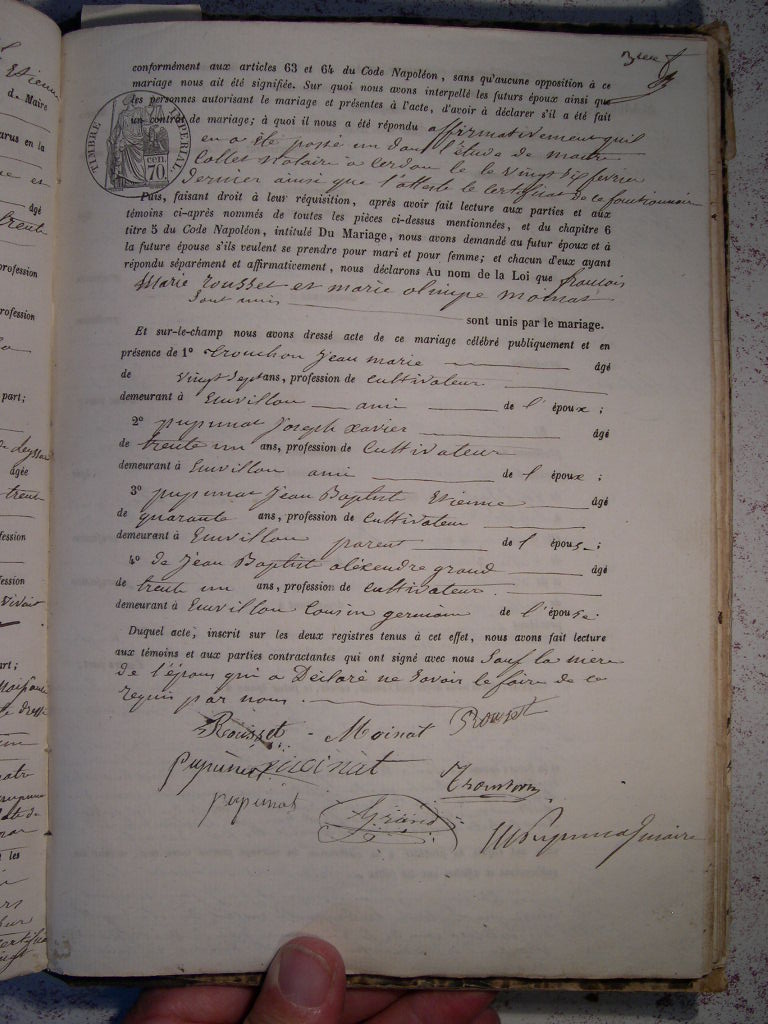 conformément aux articles 63 et 64 du Code Napoléon, sans qu'aucune opposition à ce
mariage nous ait été signifiée. Sur quoi nous avons interpellé les futurs époux ainsi que
les personnes autorisant le mariage et présentes à l'acte, d'avoir à déclarer s'il a été fait
un contrat de mariage; à quoi il nous a été répondu affirmativement qu'il
en a été passé un dans l'étude de maitre
Collet Notaire a Cerdon le le vingt dix fevrier
dernier ainsi que l'atteste le certificat de ce fonctionnaire
TIMBRE IMPÉRIAL
cen. 70.
Puis, faisant droit à leur réquisition, après avoir fait lecture aux parties et aux
témoins ci-après nommés de toutes les pièces ci-dessus mentionnées, et du chapitre 6
titre 5 du Code Napoléon, intitulé Du Mariage, nous avons demandé au futur époux et à
la future épouse s'ils veulent se prendre pour mari et pour femme; et chacun d'eux ayant
répondu séparément et affirmativement, nous déclarons Au nom de la Loi que francois
Marie rousset et marie olimpe moinat
Sont unis
sont unis par le mariage.
Et sur-le-champ nous avons dressé acte de ce mariage célébré publiquement et en
présence de 1° Trouchon Jean marie âgé
de vingt sept ans, profession de Cultivateur
demeurant à Emvillon ami de l'époux ;
2° pupunat Joseph xavier âgé
de trente un ans, profession de Cultivateur
demeurant à Emvillon ami de l'époux ;
3° pupunat Jean Baptist Etienne âgé
de quarante ans, profession de Cultivateur
demeurant à Emvillon parent de l'épouse ;
4° de Jean Baptist aléxendre grand âgé
de trente un ans, profession de Cultivateur
demeurant à Emvillon Cousin germain de l'épouse.
Duquel acte, inscrit sur les deux registres tenus à cet effet, nous avons fait lecture
aux témoins et aux parties contractantes qui ont signé avec nous Sauf la mere
de l'époux qui a Déclaré ne Savoir le faire de ce
requis par nous.
Rousset Moinat Rousset
pupunat moinat Trouchon
pupunat Grand pupunat maire